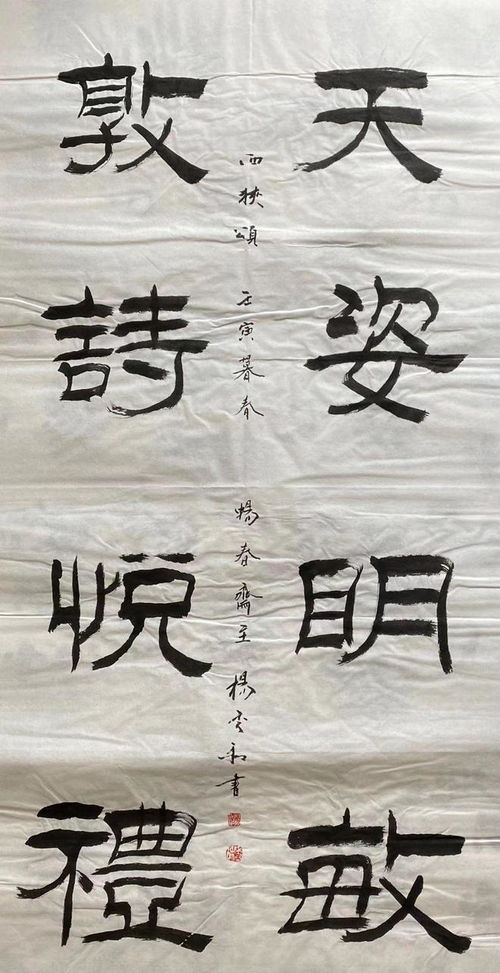 天姿明敏
敦詩悅禮
西狹頌 壬寅暮春 暢春齋主 楊奕和書